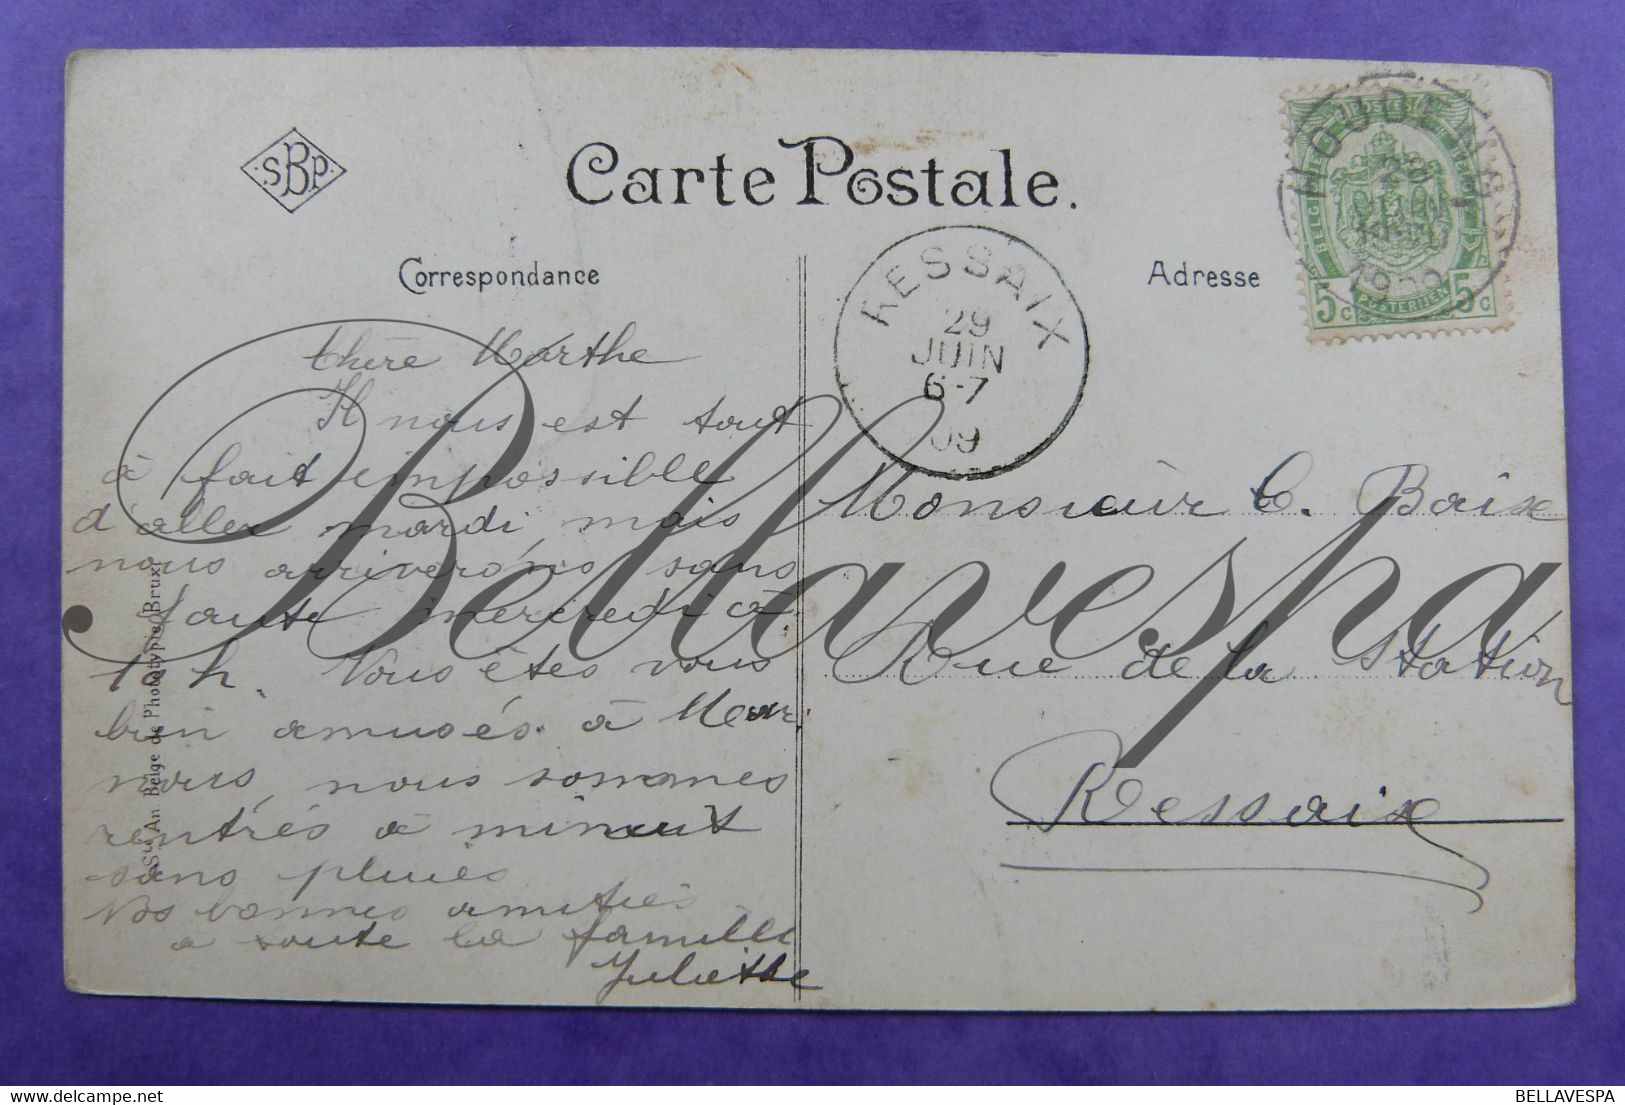 SBP
Carte Postale.
Correspondance
Adresse
HOUDENG
28
JUIN
1909
BELGI
5c POSTERIJEN 5c
RESSAIX
29
JUIN
6-7
09
Chère Marthe
Il nous est tout
à fait impossible
d'aller mardi, mais
nous arriverons sans
faute mercredi à
1 h. Vous êtes vous
bien amusés à Mar.
nous, nous sommes
rentrés à minuit
sans pluies
Nos bonnes amitiés
a toute la famille
Juliethe
Monsieur C. Baise
Rue de la Station
Ressaix
Sté An. Belge de Phototypie, Brux.
Bellavespa
BELLAVESPA